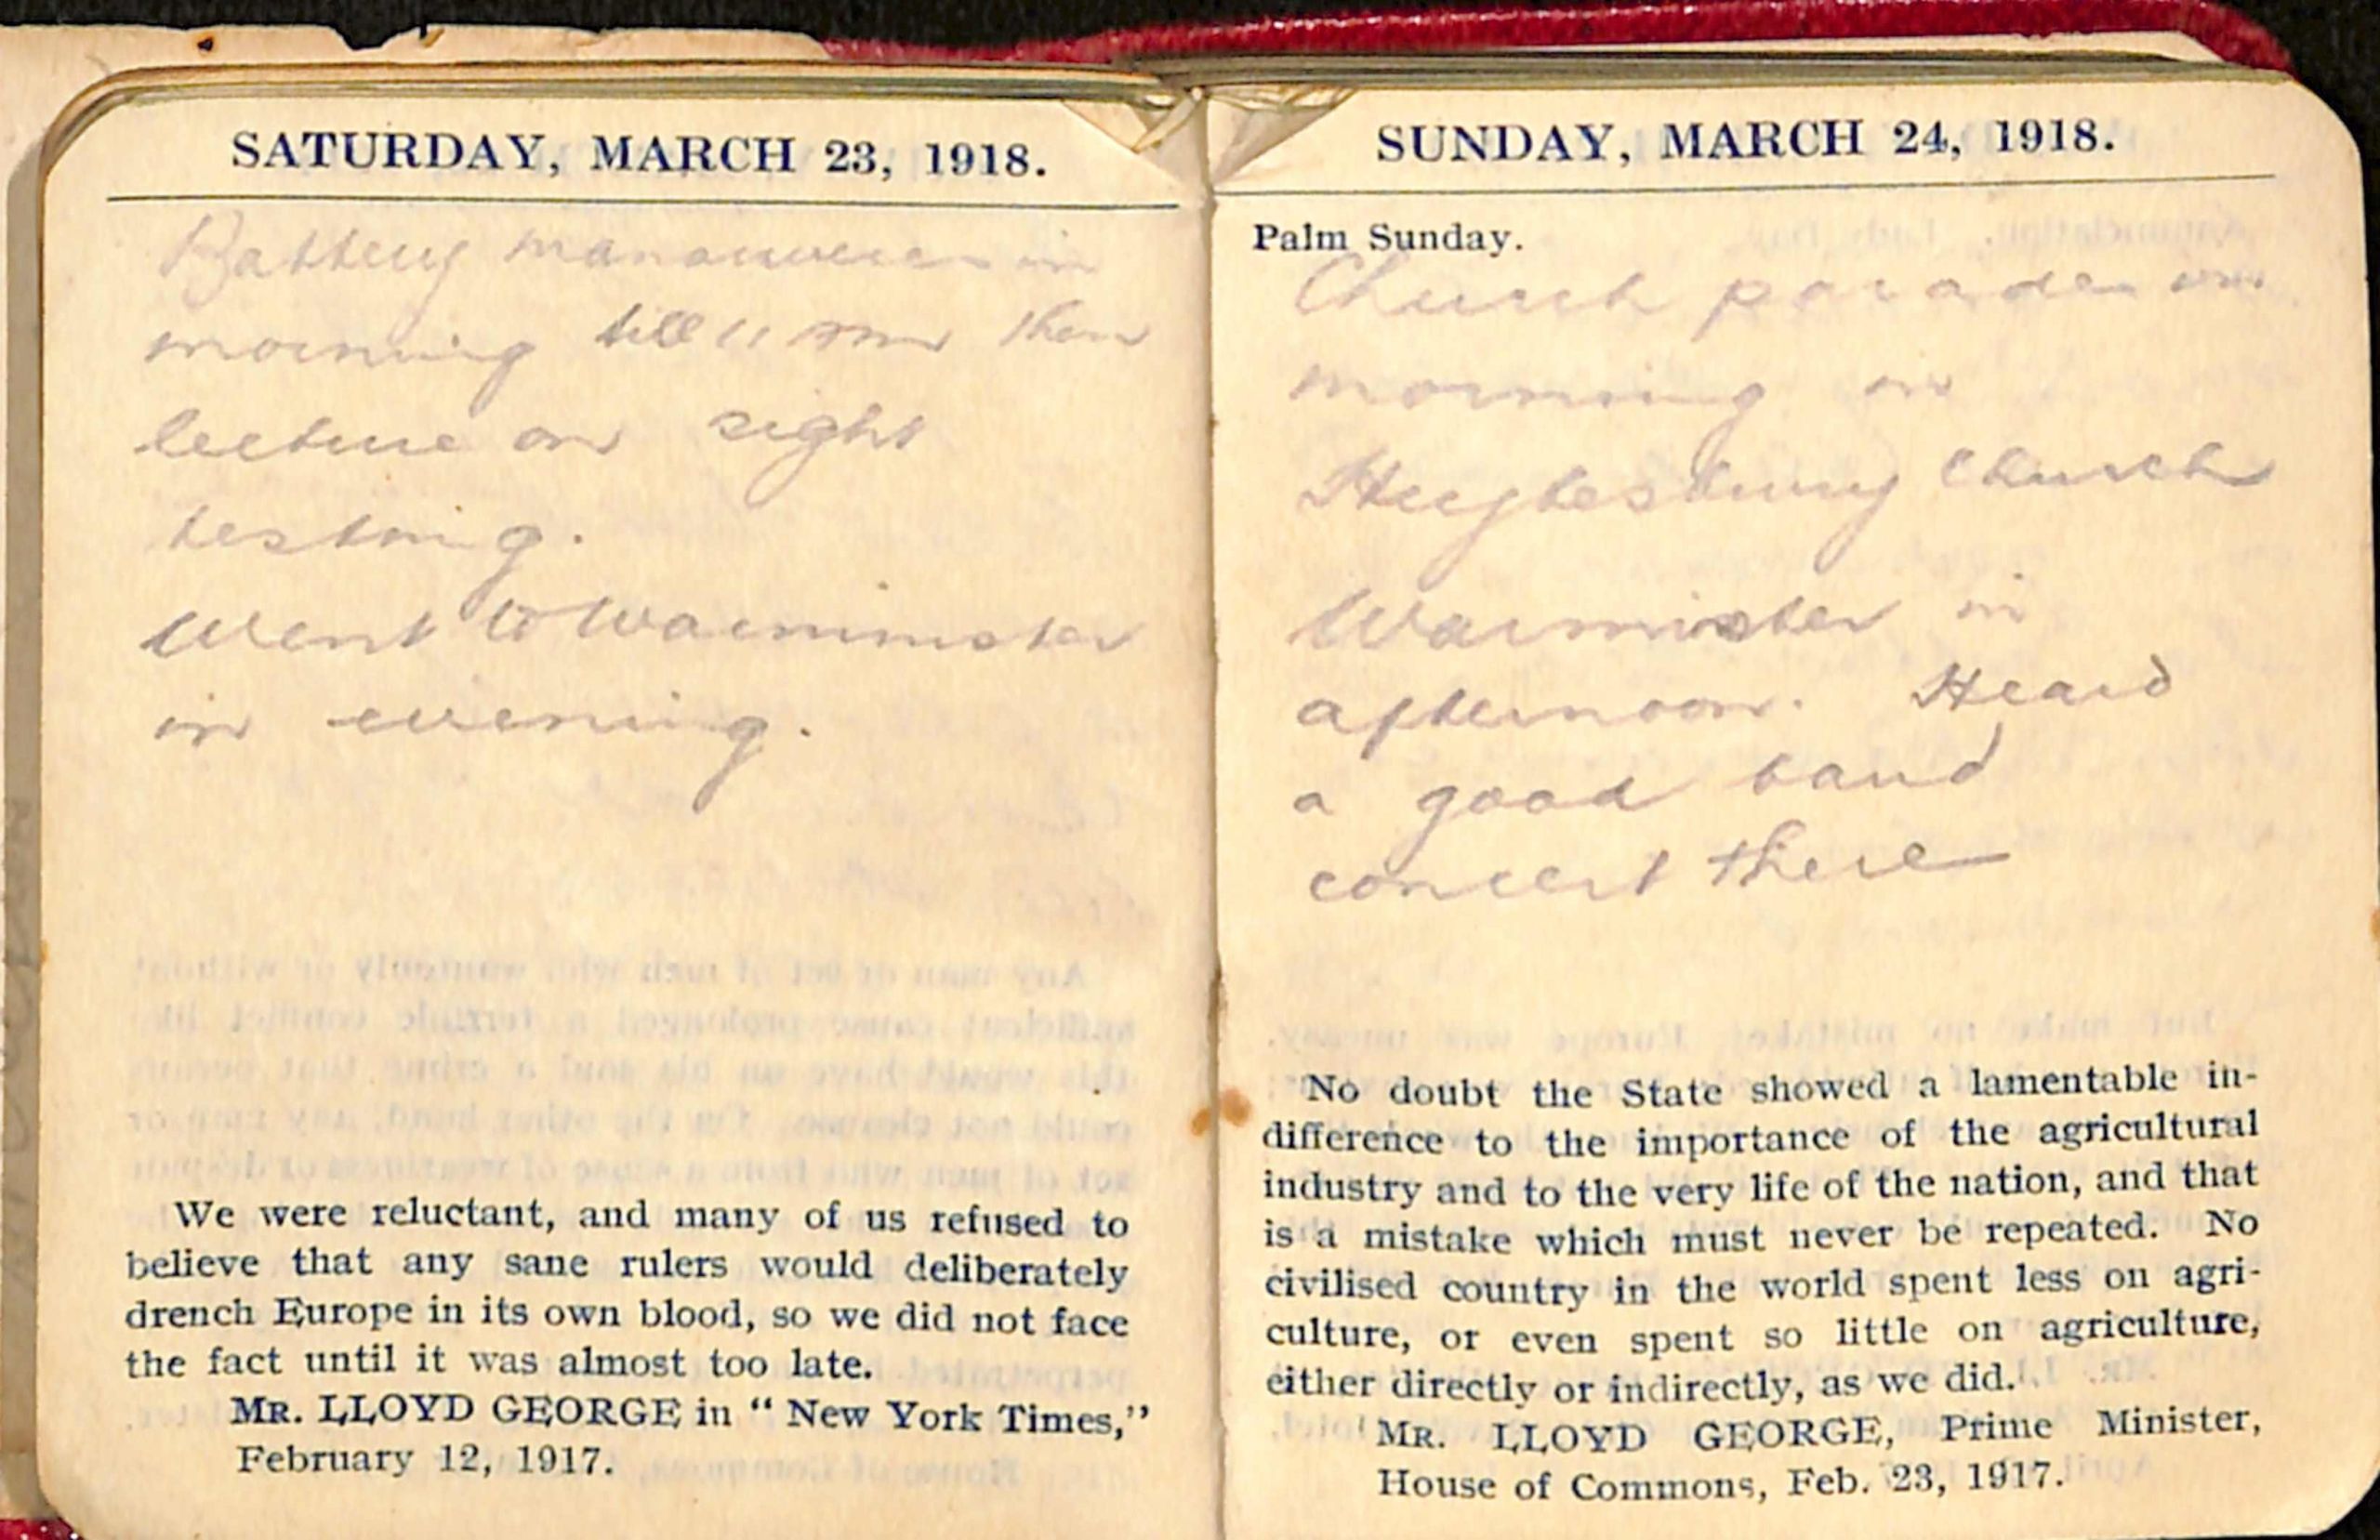 SATURDAY, MARCH 23, 1918.
Battery manouveres in
morning till 11 am then
lecture on sight
testing.
Went to Warminster
in evening.
We were reluctant, and many of us refused to
believe that any sane rulers would deliberately
drench Europe in its own blood, so we did not face
the fact until it was almost too late.
MR. LLOYD GEORGE in “ New York Times,”
February 12, 1917.
SUNDAY, MARCH 24, 1918.
Palm Sunday.
Church parade in
morning in
Heytesbury Church
Warminster in
afternoon. Heard
a good band
concert there
No doubt the State showed a lamentable in-
difference to the importance of the agricultural
industry and to the very life of the nation, and that
is a mistake which must never be repeated. No
civilised country in the world spent less on agri-
culture, or even spent so little on agriculture,
either directly or indirectly, as we did.
MR. LLOYD GEORGE, Prime Minister,
House of Commons, Feb. 23, 1917.